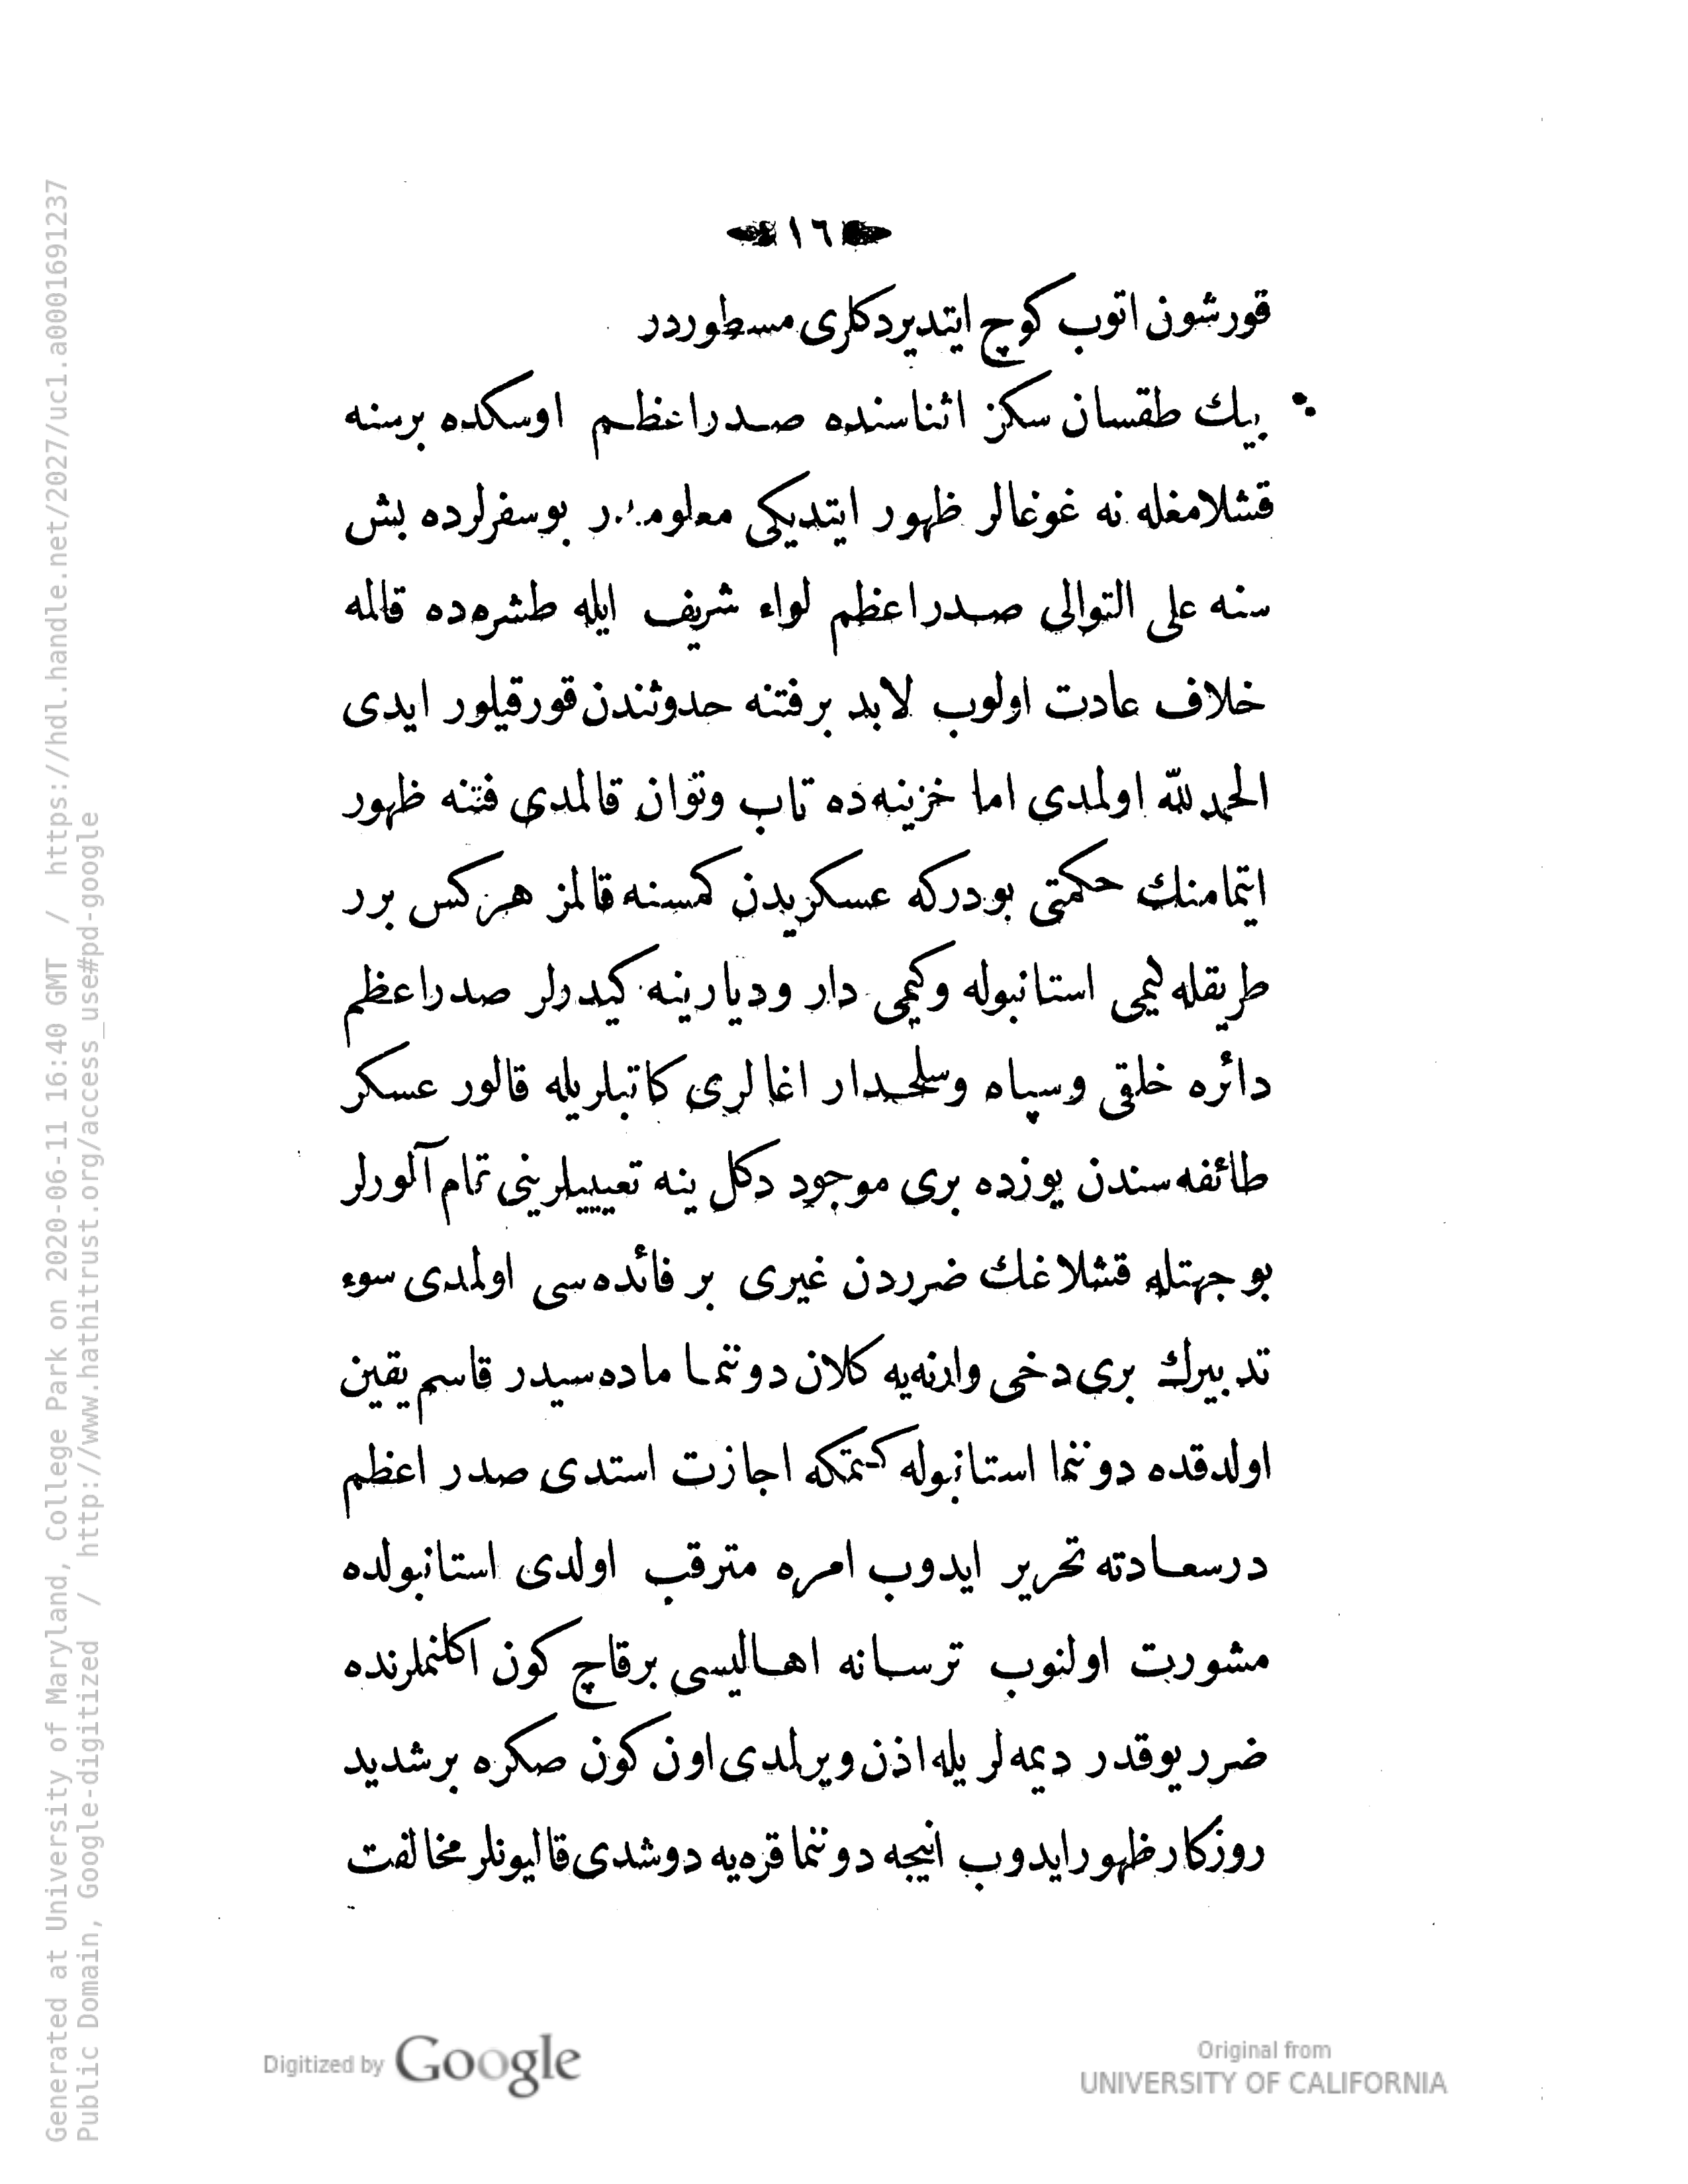 ١٦
قورشون اتوب كوچ ايتديردكلرى مسطوردر
بيك طقسان سكز اثناسنده صدراعظم اوسكده برسنه
قشلامغله نه غوغالر ظهور ايتديكى معلومدر بوسفرلرده بش
سنه على التوالى صدراعظم لواء شريف ايله طشره‌ده قالمه
خلاف عادت اولوب لابد برفتنه حدوثندن قورقيلور ايدى
الحمد لله اولمدى اما خزينه‌ده تاب وتوان قالمدى فتنه ظهور
ايتمامنك حكمتى بودركه عسكريدن كمسنه قالمز هركس برر
طريقله كيمى استانبوله وكيمى دار وديارينه كيدرلر صدراعظم
دائره خلقى وسپاه وسلحدار اغالرى كاتبلريله قالور عسكر
طائفه‌سندن يوزده برى موجود دكل ينه تعيينلرينى تمام آلورلر
بو جهتله قشلاغك ضرردن غيرى بر فائده‌سى اولمدى سوء
تدبيرك برى دخى وارنه‌يه كلان دوننما ماده‌سيدر قاسم يقين
اولدقده دوننما استانبوله كيتمكه اجازت استدى صدر اعظم
درسعادته تحرير ايدوب امره مترقب اولدى استانبولده
مشورت اولنوب ترسانه اهاليسى برقاچ كون اكلنملرنده
ضرر يوقدر ديمه‌لر يله اذن ويرلمدى اون كون صكره برشديد
روزكار ظهور ايدوب انيجه دوننما قره‌يه دوشدى قاليونلر مخالفت
Digitized by Google
Original from
UNIVERSITY OF CALIFORNIA
Generated at University of Maryland, College Park on 2020-06-11 16:40 GMT / https://hdl.handle.net/2027/uc1.a0001691237
Public Domain, Google-digitized / http://www.hathitrust.org/access_use#pd-google